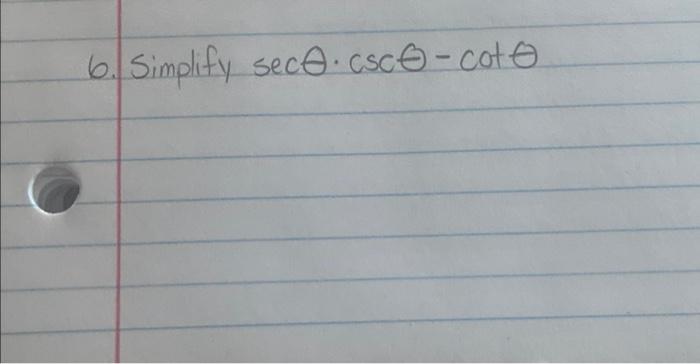 6. Simplify secθ · cscθ - cotθ